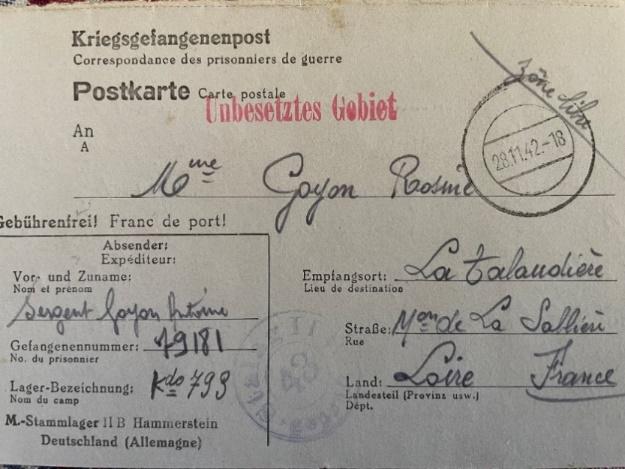 Kriegsgefangenenpost
Correspondance des prisonniers de guerre
Postkarte Carte postale
Unbesetztes Gebiet
zône libre
28.11.42.-18
An
A
Mme Goyon Rosine
Gebührenfrei! Franc de port!
Absender:
Expéditeur:
Vor- und Zuname:
Nom et prénom
Sergent Goyon Antoine
Gefangenennummer: 79181
No. du prisonnier
Lager-Bezeichnung: Kdo 793
Nom du camp
M.-Stammlager II B Hammerstein
Deutschland (Allemagne)
Empfangsort: La Talaudière
Lieu de destination
Straße: Mon de La Sablière
Rue
Land: Loire France
Landesteil (Provinz usw.)
Dépt.